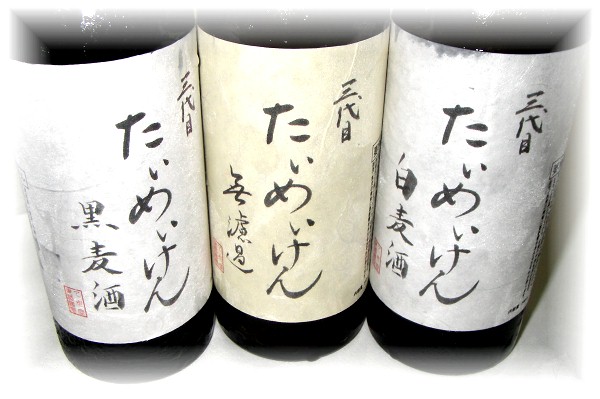 三代目
たいめいけん
黒麦酒
三代目
たいめいけん
無濾過
三代目
たいめいけん
白麦酒